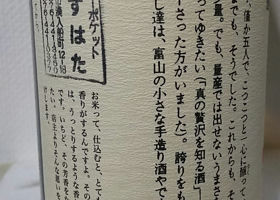 、僅か五人で、こつこつと
までも、そうでした。これからも、そ
量。でも、量産では出せないうまさ
ってゆきたい（「真の贅沢を知る酒」
さった方がいました）。誇りをも
し達は、富山の小さな手造り酒やで
お米って、仕込むと、とて
香りがするんですよ。その
は、うっとりするような香
です。いちど、その芳香を
そんな思いを
げます。
ポケット
すはた
入船町12-18